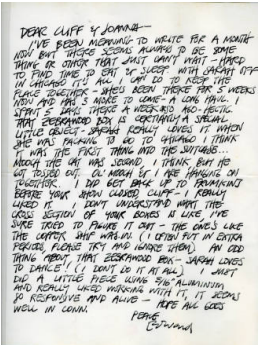 DEAR CLIFF & JOANNA —
I'VE BEEN MEANING TO WRITE FOR A MONTH
NOW BUT THERE SEEMS ALWAYS TO BE SOME
THING OR OTHER THAT JUST CAN'T WAIT – HARD
TO FIND TIME TO EAT & SLEEP WITH SARAH OFF
IN CHICAGO. IT ALL I CAN DO TO KEEP THE
PLACE TOGETHER – SHE'S BEEN THERE FOR 5 WEEKS
NOW AND HAS 3 MORE TO COME – A LONG HAUL. I
SPENT 5 DAYS THERE A WEEK AGO AND – HECTIC.
THAT ZEBRAWOOD BOX IS CERTAINLY A SPECIAL
LITTLE OBJECT – SARAH REALLY LOVES IT. WHEN
SHE WAS PACKING TO GO TO CHICAGO I THINK
IT WAS THE FIRST THING INTO THE SUITCASE..
MOOCH THE CAT WAS SECOND, I THINK BUT HE
GOT TOSSED OUT. OL' MOOCH & I ARE HANGING ON
TOGETHER. I DID GET BACK UP TO
BEFORE YOUR SHOW CLOSED CLIFF – I REALLY
LIKED IT. I DON'T UNDERSTAND WHAT THE
CROSS SECTION OF YOUR BOXES IS LIKE, I'VE
SURE TRIED TO FIGURE IT OUT – THE ONE'S LIKE
THE COPPER SHIP WAS IN. (I OFTEN PUT IN EXTRA
PERIODS, PLEASE TRY AND IGNORE THEM) AN ODD
THING ABOUT THAT ZEBRAWOOD BOX – SARAH LOVES
TO DANCE! (I DON'T DO IT AT ALL) I JUST
DID A LITTLE PIECE USING 5/16" ALUMINUM
AND REALLY LIKED WORKING WITH IT, IT SEEMS
SO RESPONSIVE AND ALIVE – HOPE ALL GOES
WELL IN CONN.
PEACE